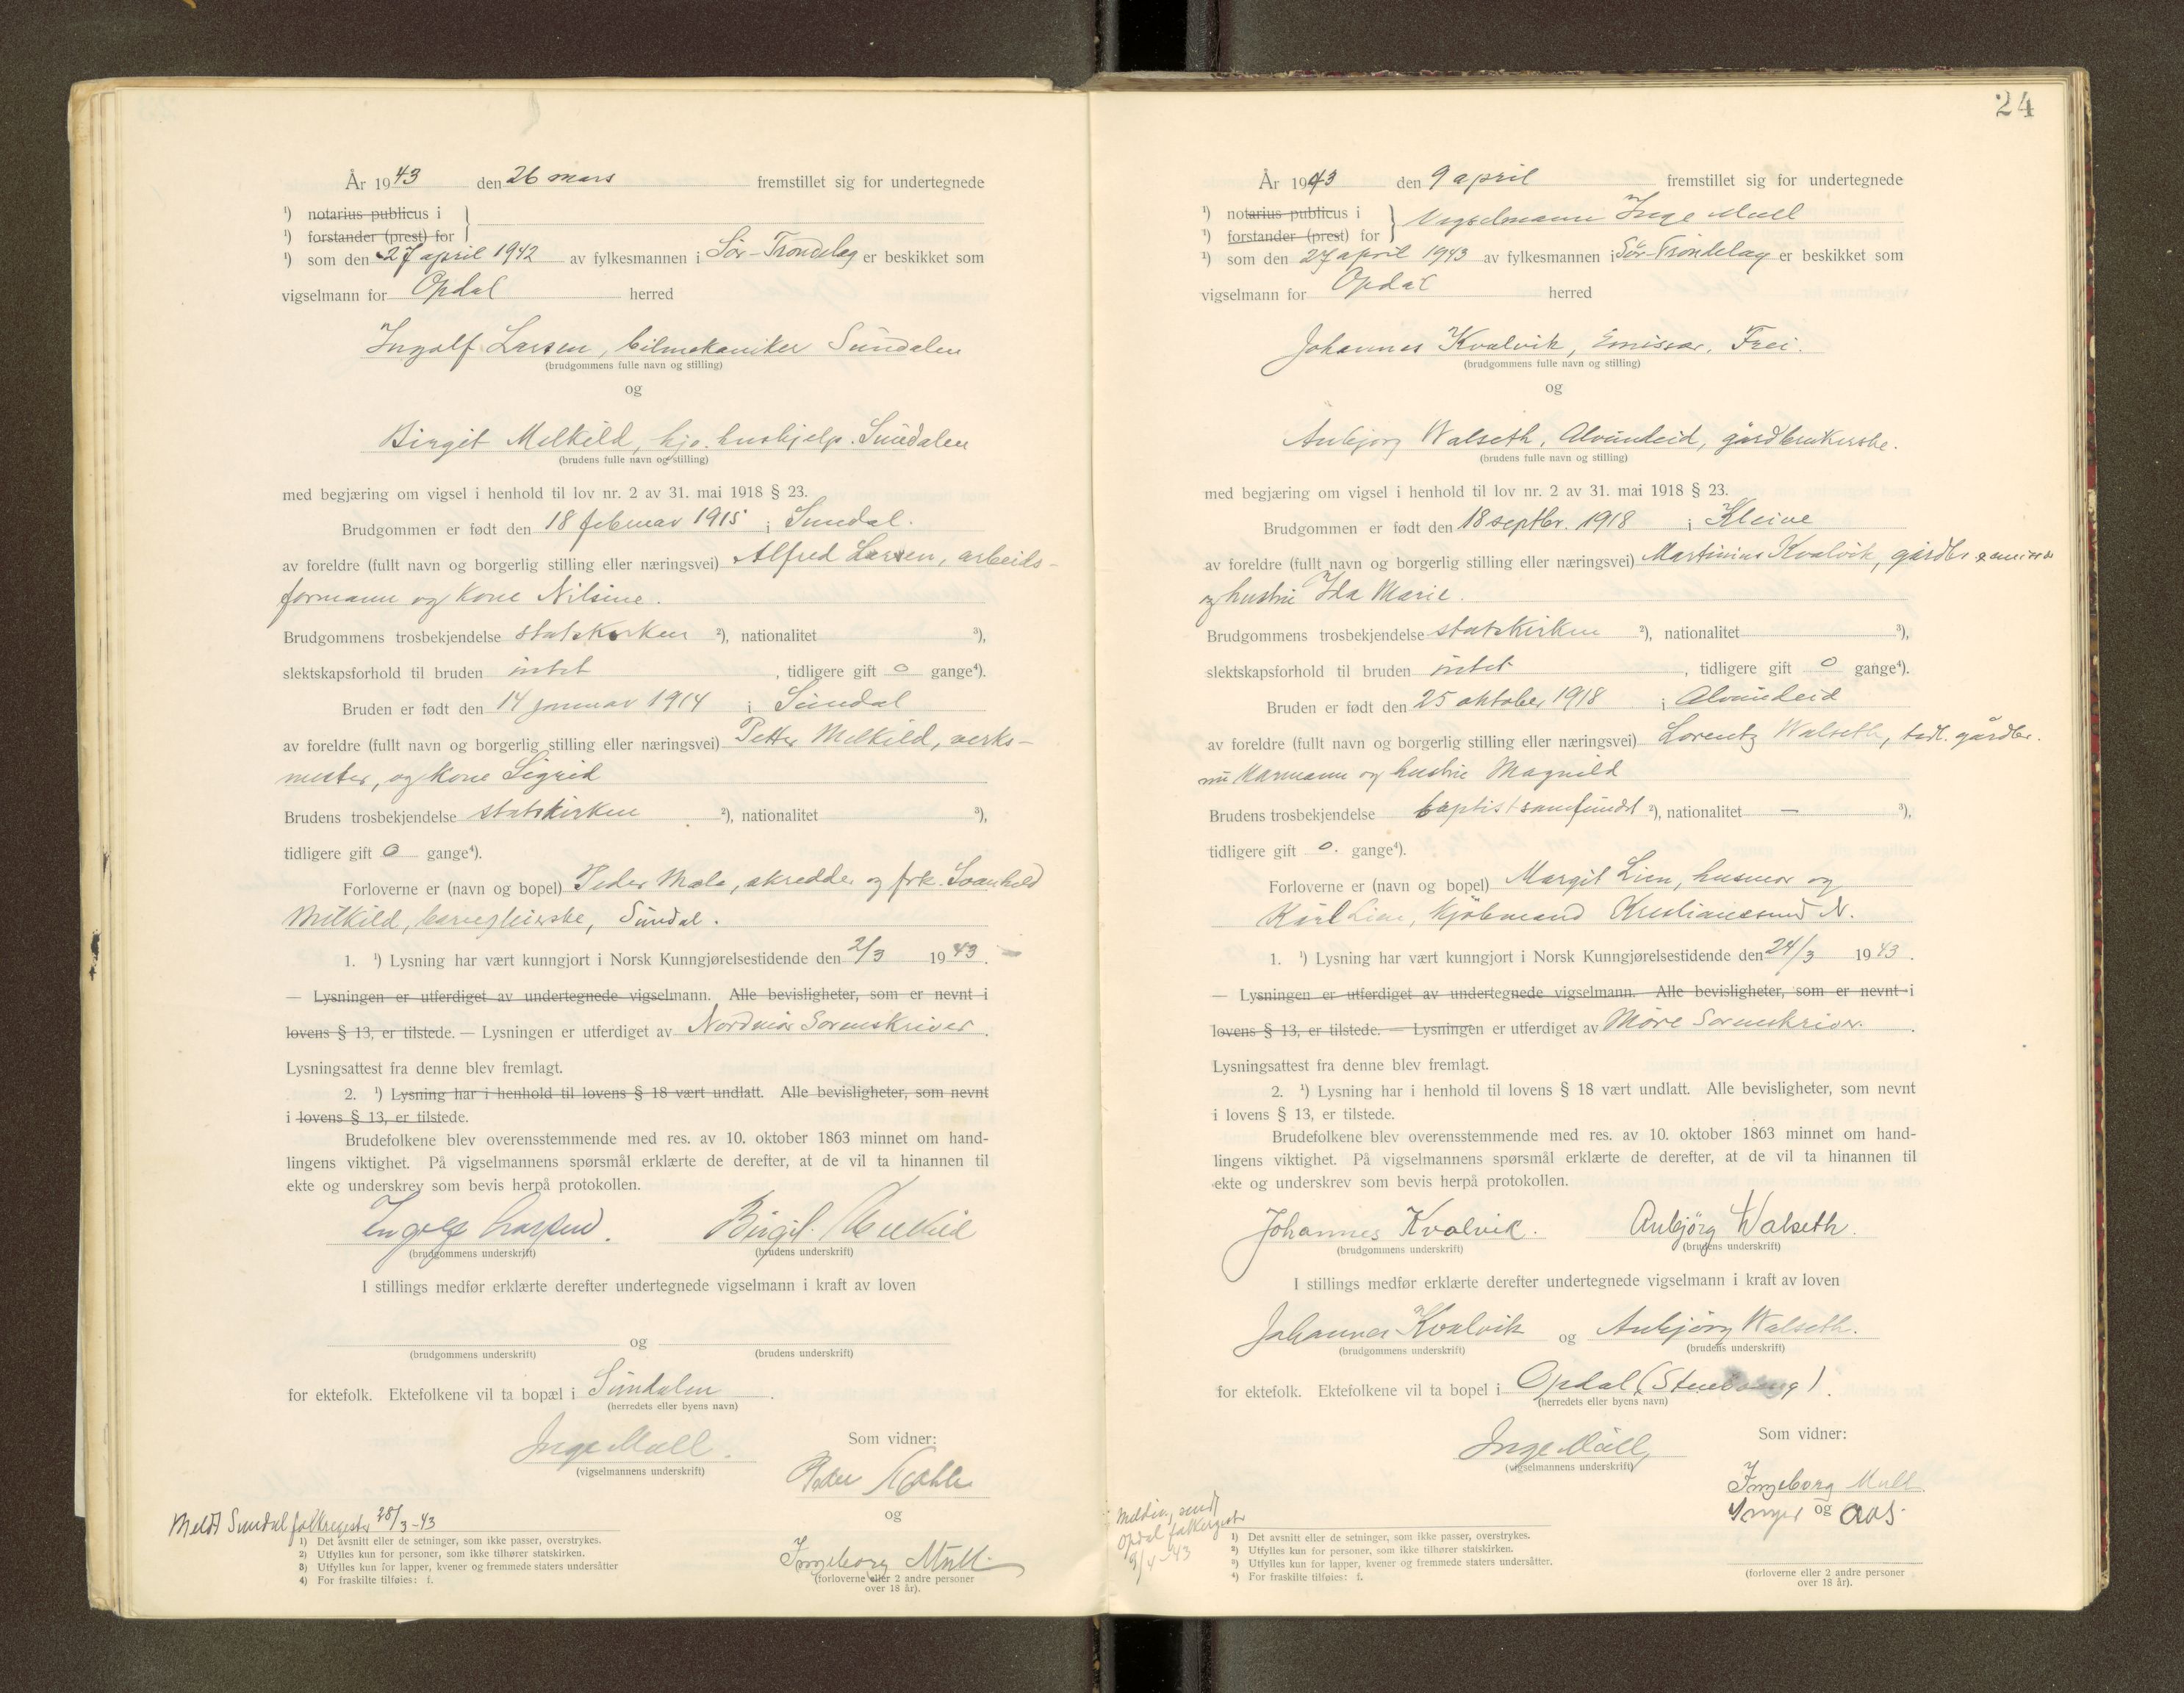 År 1943 den 26 mars fremstillet sig for undertegnede
¹) notarius publicus i }
¹) forstander (prest) for
¹) som den 27 april 1942 av fylkesmannen i Sör-Trondelag er beskikket som
vigselmann for Opdal herred
Ingolf Larsen, bilmekaniker Sundalen
(brudgommens fulle navn og stilling)
og
Birgit Melkild, hjp. hushjelp. Sundalen
(brudens fulle navn og stilling)
med begjæring om vigsel i henhold til lov nr. 2 av 31. mai 1918 § 23.
Brudgommen er født den 18 februar 1915 i Sundal.
av foreldre (fullt navn og borgerlig stilling eller næringsvei) Alfred Larsen, arbeids-
formann og kone Nilsine.
Brudgommens trosbekjendelse statskirken ²), nationalitet ³),
slektskapsforhold til bruden intet, tidligere gift 0 gange⁴).
Bruden er født den 14 januar 1914 i Sundal
av foreldre (fullt navn og borgerlig stilling eller næringsvei) Petter Melkild, verks-
mester, og kone Sigrid
Brudens trosbekjendelse statskirken ²), nationalitet ³),
tidligere gift 0 gange⁴).
Forloverne er (navn og bopel) Peder Mæle, skredder og frk. Svanhild
Melkild, barnepleierske, Sundal.
1. ¹) Lysning har vært kunngjort i Norsk Kunngjørelsestidende den 2/3 1943.
— Lysningen er utferdiget av undertegnede vigselmann. Alle bevisligheter, som er nevnt i
lovens § 13, er tilstede. — Lysningen er utferdiget av Nordmör Sorenskriver.
Lysningsattest fra denne blev fremlagt.
2. ¹) Lysning har i henhold til lovens § 18 vært undlatt. Alle bevisligheter, som nevnt
i lovens § 13, er tilstede.
Brudefolkene blev overensstemmende med res. av 10. oktober 1863 minnet om hand-
lingens viktighet. På vigselmannens spørsmål erklærte de derefter, at de vil ta hinannen til
ekte og underskrev som bevis herpå protokollen.
Ingolf Larsen. Birgit Melkild
(brudgommens underskrift) (brudens underskrift)
I stillings medfør erklærte derefter undertegnede vigselmann i kraft av loven
og
(brudgommens underskrift) (brudens underskrift)
for ektefolk. Ektefolkene vil ta bopæl i Sundalen.
(herredets eller byens navn)
Inge Mull.
(vigselmannens underskrift)
Som vidner:
Peder Mæhle
og
Ingeborg Mull.
(forloverne eller 2 andre personer
over 18 år).
Meldt Sundal folkregister 28/3-43
1) Det avsnitt eller de setninger, som ikke passer, overstrykes.
2) Utfylles kun for personer, som ikke tilhører statskirken.
3) Utfylles kun for lapper, kvener og fremmede staters undersåtter
4) For fraskilte tilføies: f.
24
År 1943 den 9 april fremstillet sig for undertegnede
¹) notarius publicus i } Vigselmann Inge Mull
¹) forstander (prest) for
¹) som den 27 april 1943 av fylkesmannen i Sör-Tröndelag er beskikket som
vigselmann for Opdal herred
Johannes Kvalvik, Emissær, Frei.
(brudgommens fulle navn og stilling)
og
Anbjørg Walseth, Alvundeid, gårdbrukerske.
(brudens fulle navn og stilling)
med begjæring om vigsel i henhold til lov nr. 2 av 31. mai 1918 § 23.
Brudgommen er født den 18 septbr. 1918 i Kleive
av foreldre (fullt navn og borgerlig stilling eller næringsvei) Martinius Kvalvik, gårdbr. & emissær
og hustru Ida Marie.
Brudgommens trosbekjendelse statskirken ²), nationalitet ³),
slektskapsforhold til bruden intet, tidligere gift 0 gange⁴).
Bruden er født den 25 oktober 1918 i Alvundeid
av foreldre (fullt navn og borgerlig stilling eller næringsvei) Lorentz Walseth, tidl. gårdbr.
nu kårmann og hustru Magnild
Brudens trosbekjendelse baptistsamfundet ²), nationalitet — ³),
tidligere gift 0. gange⁴).
Forloverne er (navn og bopel) Margit Lien, husmor og
Karl Lien, Kjöbmand Kristiansund N.
1. ¹) Lysning har vært kunngjort i Norsk Kunngjørelsestidende den 24/3 1943.
— Lysningen er utferdiget av undertegnede vigselmann. Alle bevisligheter, som er nevnt i
lovens § 13, er tilstede. — Lysningen er utferdiget av Möre Sorenskriver.
Lysningsattest fra denne blev fremlagt.
2. ¹) Lysning har i henhold til lovens § 18 vært undlatt. Alle bevisligheter, som nevnt
i lovens § 13, er tilstede.
Brudefolkene blev overensstemmende med res. av 10. oktober 1863 minnet om hand-
lingens viktighet. På vigselmannens spørsmål erklærte de derefter, at de vil ta hinannen til
ekte og underskrev som bevis herpå protokollen.
Johannes Kvalvik. Anbjørg Walseth.
(brudgommens underskrift) (brudens underskrift)
I stillings medfør erklærte derefter undertegnede vigselmann i kraft av loven
Johannes Kvalvik og Anbjörg Walseth.
(brudgommens underskrift) (brudens underskrift)
for ektefolk. Ektefolkene vil ta bopel i Opdal
(herredets eller byens navn)
Inge Mull,
(vigselmannens underskrift)
Som vidner:
Ingeborg Mull
Inger og Aas.
(forloverne eller 2 andre personer
over 18 år).
Meldin, sendt
Opdal folkeregister
9/4-43
1) Det avsnitt eller de setninger, som ikke passer, overstrykes.
2) Utfylles kun for personer, som ikke tilhører statskirken.
3) Utfylles kun for lapper, kvener og fremmede staters undersåtter.
4) For fraskilte tilføies: f.